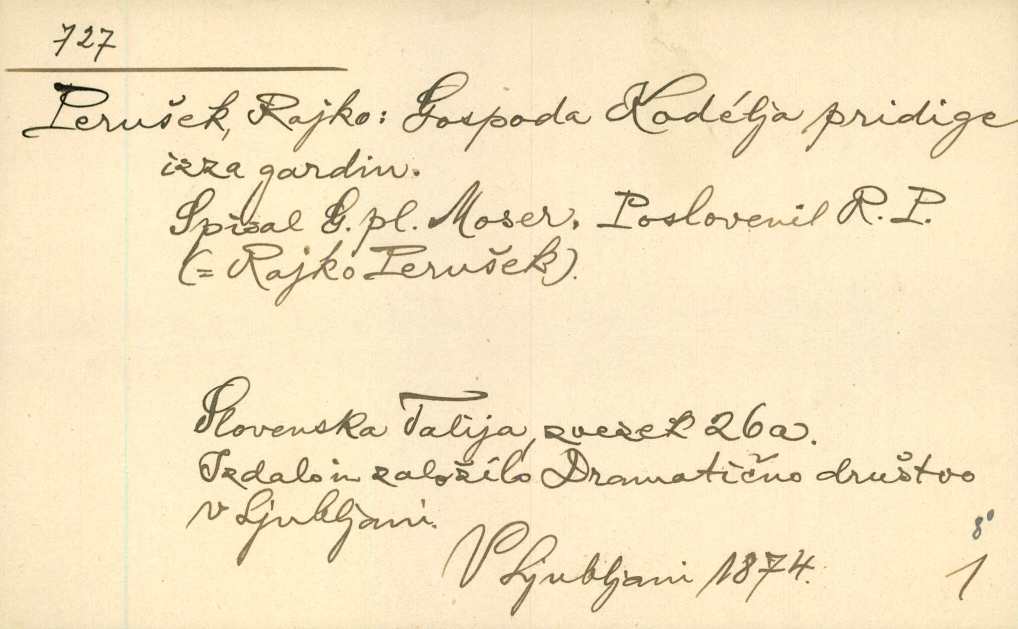 727
Perušek, Rajko: Gospoda Kodélja pridige
izza gardin.
Spisal G. pl. Moser. Poslovenil R. P.
(= Rajko Perušek).
Slovenska Talija, zvezek 26a.
Izdalo in založilo Dramatično društvo
v Ljubljani.
V Ljubljani 1874.
8°
1